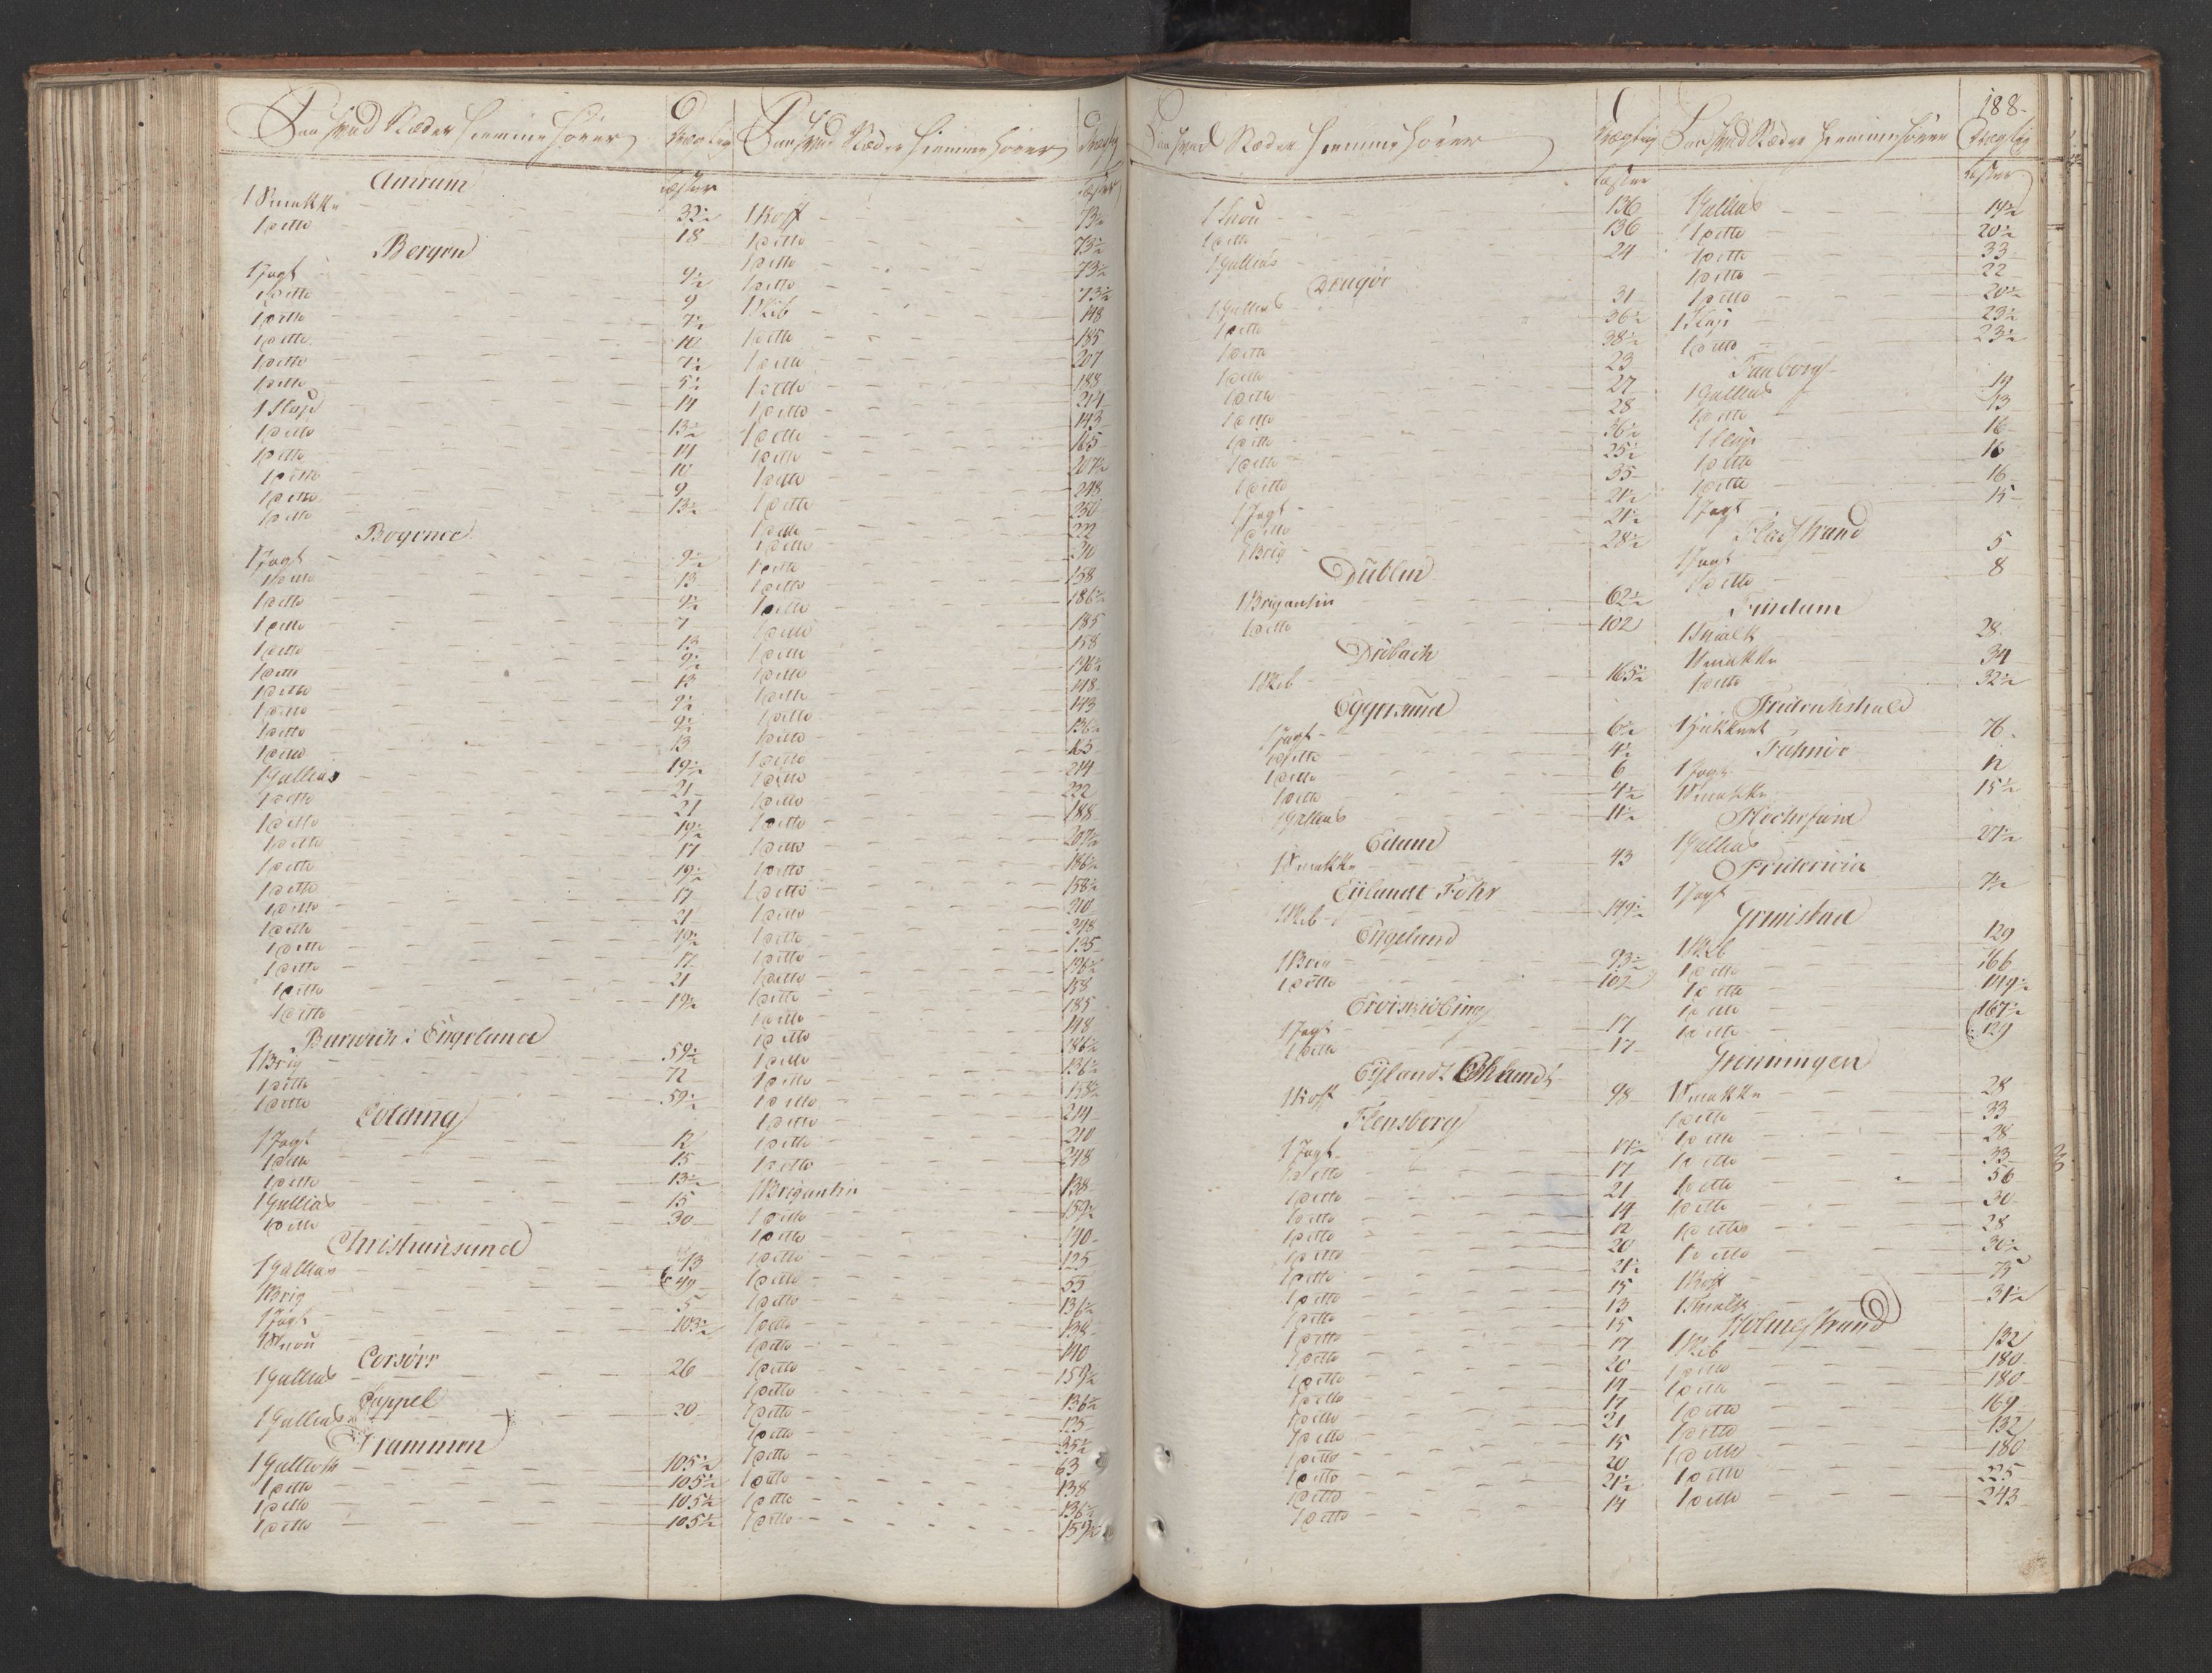 Paa hvad Stæder hiemme hører
Drægtig
Læster
Amrum
1 Smakke 32½
1 ditto 18
Bergen
1 Jagt 9½
1 ditto 9
1 ditto 7½
1 ditto 10
1 ditto 7½
1 ditto 5½
1 Slup 14
1 ditto 13½
1 ditto 14
1 ditto 10
1 ditto 9
1 ditto 13½
Bogense
1 Jagt 9½
1 ditto 13
1 ditto 9½
1 ditto 7
1 ditto 13
1 ditto 9½
1 ditto 13
1 ditto 9½
1 ditto 9½
1 ditto 13
1 Gallias 19½
1 ditto 21
1 ditto 21
1 ditto 19½
1 ditto 17
1 ditto 19½
1 ditto 17
1 ditto 21
1 ditto 19½
1 ditto 17
1 ditto 21
1 ditto 19½
Barwich i Engeland
1 Brig 59½
1 ditto 72
1 ditto 59½
Colding
1 Jagt 12
1 ditto 15
1 ditto 13½
1 Gallias 15
1 ditto 30
Christiansand
1 Gallias 43
1 Brig 49
1 Jagt 5
1 Snau 103½
Corsöer
1 Gallias 26
Cappel
1 Gallias 20
Drammen
1 Gallioth 105½
1 ditto 105½
1 ditto 105½
1 ditto 105½
Paa hvad Stæder hiemme hører
Drægtig
Læster
1 Koff 73½
1 ditto 73½
1 ditto 73½
1 ditto 73½
1 Skib 148
1 ditto 185
1 ditto 207
1 ditto 188
1 ditto 214
1 ditto 143
1 ditto 165
1 ditto 207½
1 ditto 248
1 ditto 250
1 ditto 222
1 ditto 210
1 ditto 158
1 ditto 186½
1 ditto 185
1 ditto 158
1 ditto 196½
1 ditto 148
1 ditto 143
1 ditto 136½
1 ditto 165
1 ditto 214
1 ditto 222
1 ditto 188
1 ditto 207½
1 ditto 186½
1 ditto 158½
1 ditto 210
1 ditto 248
1 ditto 135
1 ditto 196½
1 ditto 158
1 ditto 185
1 ditto 148
1 ditto 186½
1 ditto 136½
1 ditto 158½
1 ditto 214
1 ditto 210
1 ditto 248
1 Brigantin 138
1 ditto 159½
1 ditto 140
1 ditto 125
1 ditto 55
1 ditto 136½
1 ditto 138
1 ditto 140
1 ditto 159½
1 ditto 136½
1 ditto 125
1 ditto 35½
1 ditto 63
1 ditto 138
1 ditto 136½
1 ditto 159½
188.
Paa hvad Stæder hiemme hører
Drægtig
Læster
1 Snau 136
1 ditto 136
1 Gallias 24
Dragöe
1 Gallias 31
1 ditto 36½
1 ditto 38½
1 ditto 23
1 ditto 27
1 ditto 28
1 ditto 36½
1 ditto 25½
1 ditto 35
1 Jagt 21½
1 ditto 21½
1 Brig 28½
Dublin
1 Brigantin 62½
1 ditto 102
Dröbach
1 Skib 165½
Eggersund
1 Jagt 6½
1 ditto 4½
1 ditto 6
1 ditto 4½
1 Gallias 11½
Edum
1 Smakke 43
Eylandt Föhr
1 Skib 149½
Engeland
1 Brig 93½
1 ditto 102
Eröiskiöbing
1 Jagt 17
1 ditto 17
Eylandt
1 Koff 98
Flensborg
1 Jagt 11½
1 ditto 17
1 ditto 21
1 ditto 14
1 ditto 12
1 ditto 20
1 ditto 21½
1 ditto 15
1 ditto 13
1 ditto 15
1 ditto 17
1 ditto 20
1 ditto 14
1 ditto 17
1 ditto 21
1 ditto 15
1 ditto 20
1 ditto 21½
1 ditto 14
Paa hvad Stæder hiemme hører
Drægtig
Læster
1 Gallias 14½
1 ditto 20½
1 ditto 33
1 ditto 22
1 ditto 20½
1 Slup 23½
1 ditto 23½
Faaborg
1 Gallias 19
1 ditto 13
1 Slup 16
1 ditto 16
1 ditto 16
1 Jagt 15
Fladstrand
1 Jagt 5
1 ditto 8
Findam
1 Smak 28
1 Smakke 34
1 ditto 32½
Friderichshald
1 Hukkert 76
Fahnöe
1 Jagt 12
1 Smakke 15½
1 Gallias 21½
Fridericia
1 Jagt 7½
Grimstad
1 Skib 129
1 ditto 166
1 ditto 149½
1 ditto 167½
1 ditto 129
Groningen
1 Smakke 28
1 ditto 33
1 ditto 28
1 ditto 33
1 ditto 56
1 ditto 30
1 ditto 28
1 ditto 30½
1 Koff 75
1 Smak 31½
Holmestrand
1 Skib 132
1 ditto 180
1 ditto 180
1 ditto 169
1 ditto 132
1 ditto 180
1 ditto 225
1 ditto 243